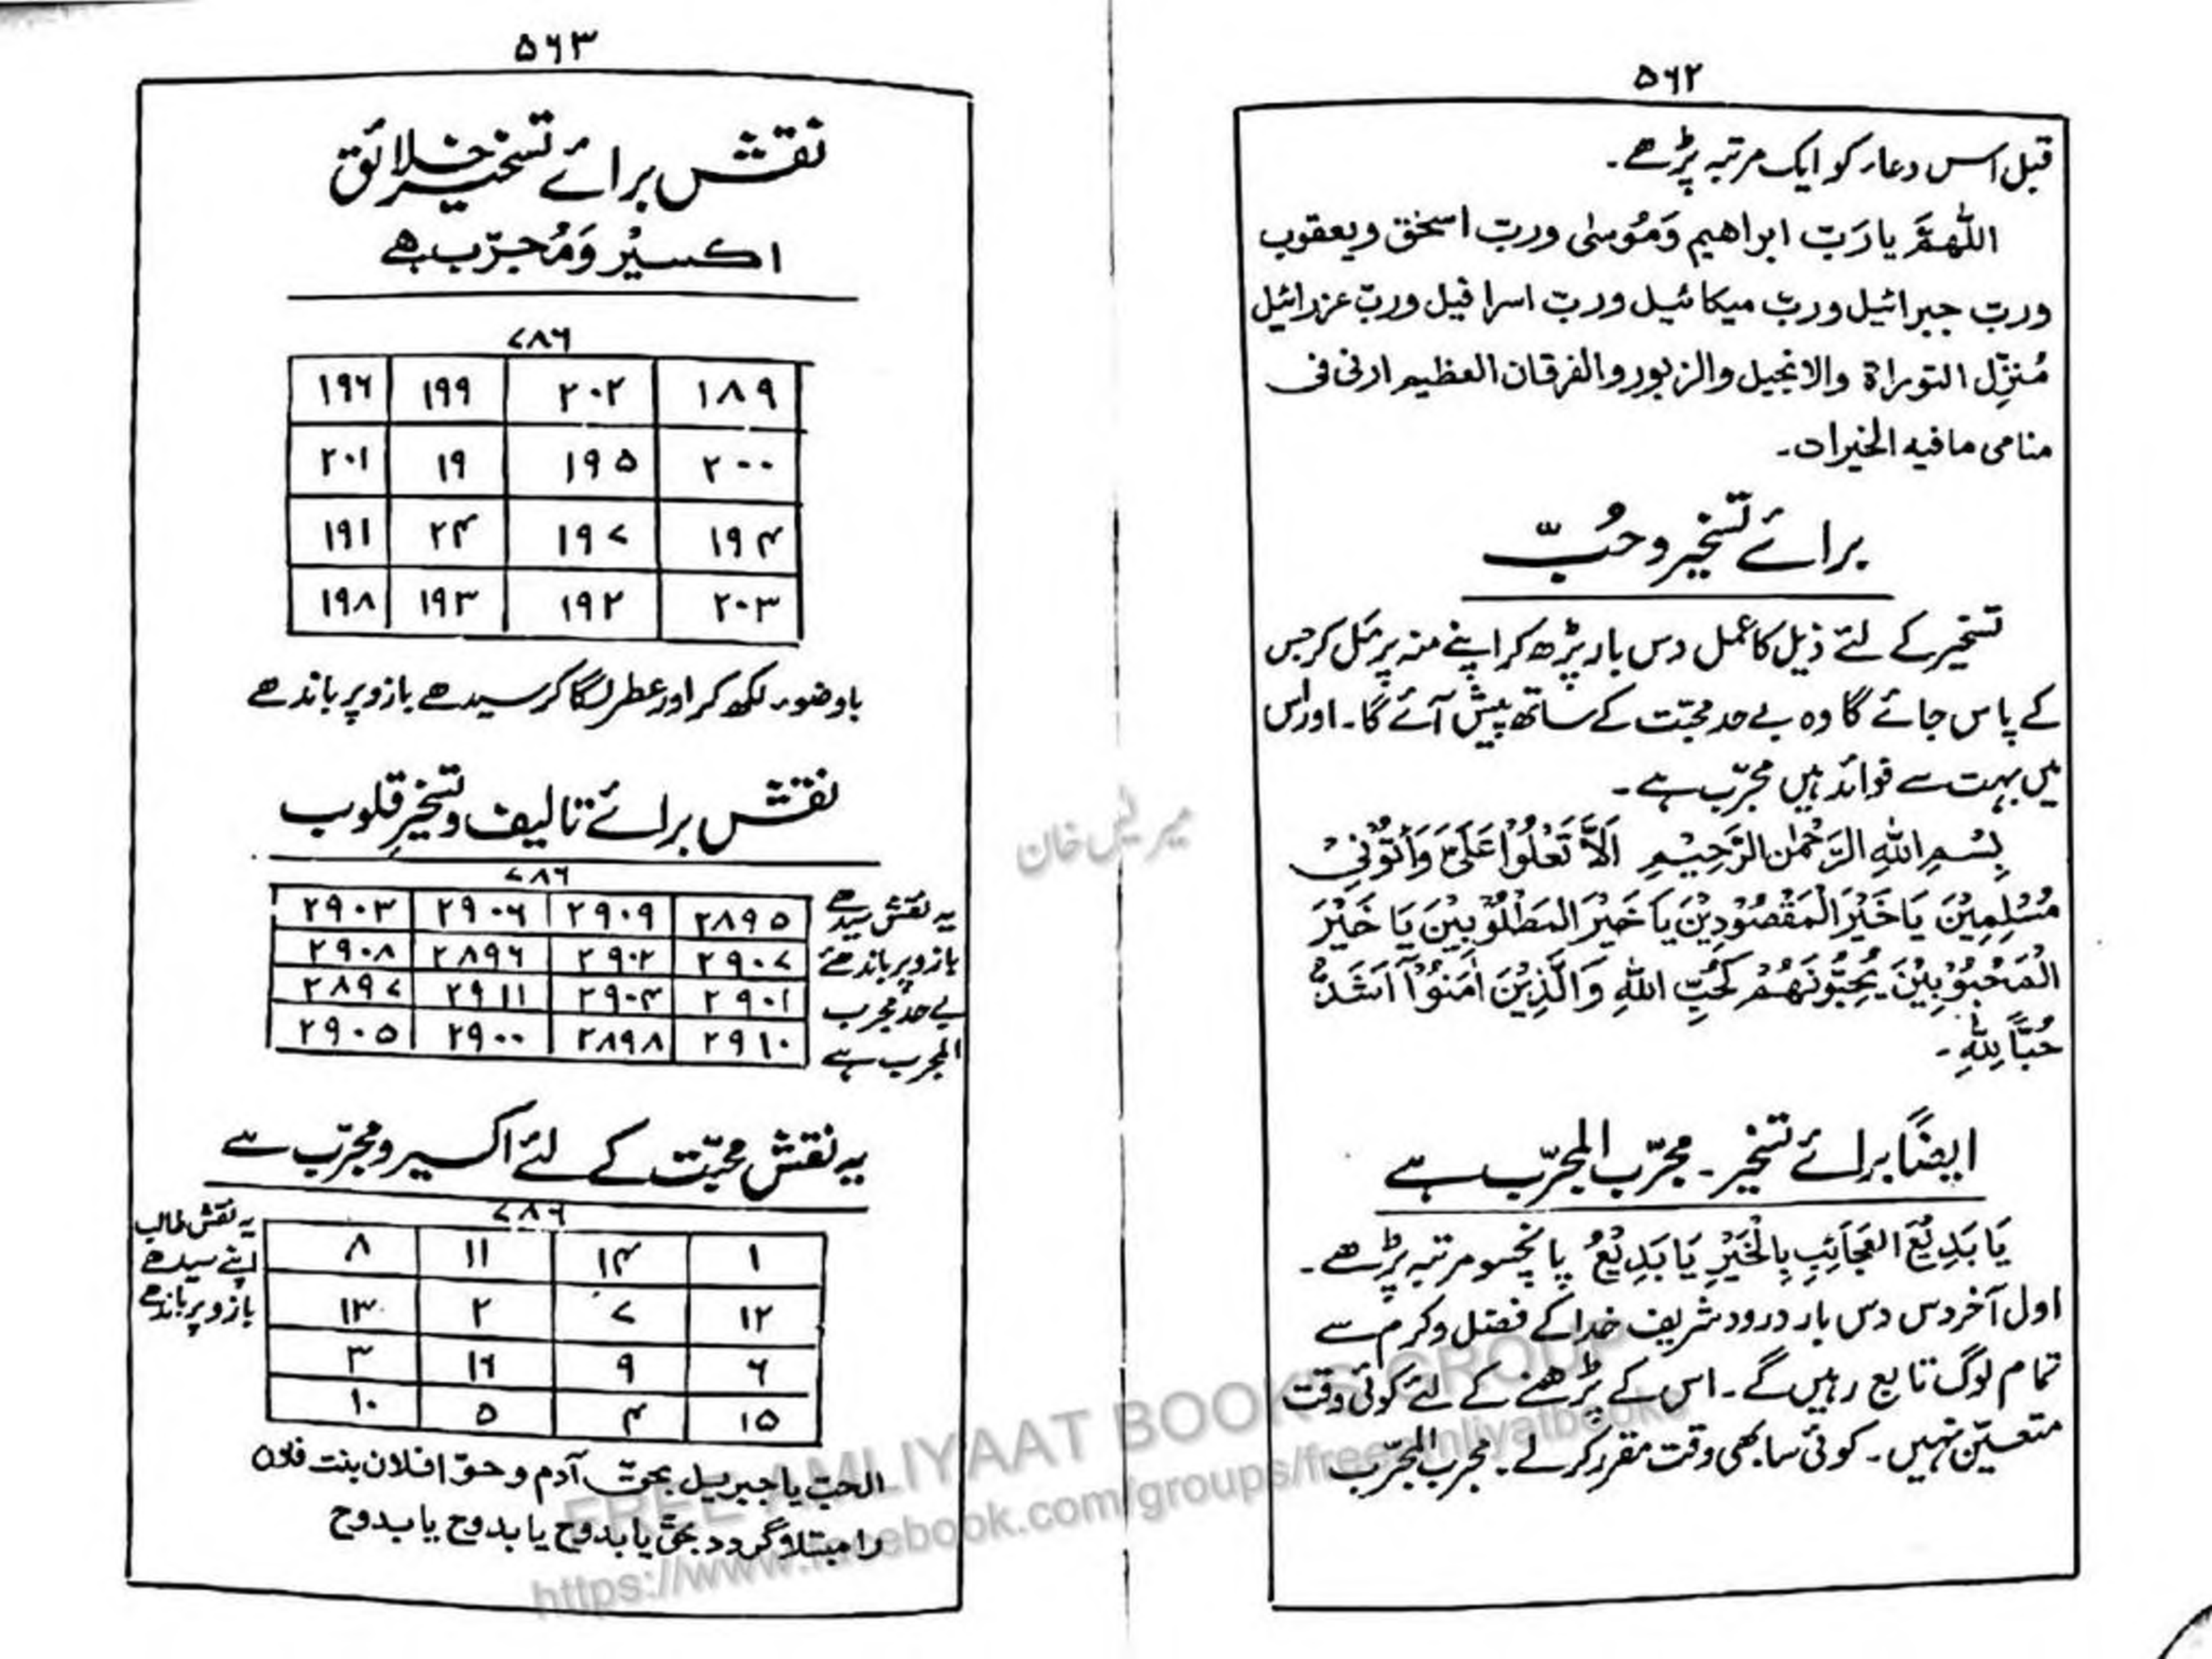 ۵۶۲
قبل اس دعار کو ایک مرتبہ پڑھے۔
اللّٰھمَّ یا رَبّ ابراھیم وَمُوسٰی وربّ اسحٰق ویعقوب
وربّ جبرائیل وربّ میکائیل وربّ اسرافیل وربّ عزرائیل
مُنزِّل التوراۃ والانجیل والزبور والفرقان العظیم ارنی فی
منامی مافیہ الخیرات۔
برائے تسخیر و حُبّ
تسخیر کے لئے ذیل کا عمل دس بار پڑھ کر اپنے منہ پر مَل کر جس
کے پاس جائے گا وہ بے حد محبّت کے ساتھ پیش آئے گا۔ اور اس
میں بہت سے فوائد ہیں مجرّب ہے۔
بِسْمِ اللهِ الرَّحْمٰنِ الرَّحِیْمِ اَلَّا تَعْلُوْا عَلَیَّ وَأْتُوْنِیْ
مُسْلِمِیْنَ یَا خَیْرَ الْمَقْصُوْدِیْنَ یَا خَیْرَ المَطْلُوْبِیْنَ یَا خَیْرَ
الْمَحْبُوْبِیْنَ یُحِبُّوْنَھُمْ کَحُبِّ اللهِ وَالَّذِیْنَ اٰمَنُوْا اَشَدُّ
حُبًّا لِلّٰهِ۔
ایضًا برائے تسخیر۔ مجرّب المجرّب ہے
یَا بَدِیْعَ العَجَائِبِ بِالْخَیْرِ یَا بَدِیْعُ پانچسو مرتبہ پڑھے۔
اول آخر دس دس بار درود شریف خدا کے فضل وکرم سے
تمام لوگ تابع رہیں گے۔ اس کے پڑھنے کے لئے کوئی وقت
متعیّن نہیں۔ کوئی سا بھی وقت مقرر کرلے۔ مجرب المجرّب
۵۶۳
نقش برائے تسخیر خلائق
اکسیْر وَمُجرّب ہے
۷۸۶
۱۸۹ ۲۰۲ ۱۹۹ ۱۹۶
۲۰۰ ۱۹۵ ۱۹ ۲۰۱
۱۹۴ ۱۹۷ ۲۴ ۱۹۱
۲۰۳ ۱۹۲ ۱۹۳ ۱۹۸
باوضور لکھ کر اور عطر لگا کر سیدھے بازو پر باندھے
نقش برائے تالیف و تسخیرِ قلوب
۷۸۶
۲۸۹۵ ۲۹۰۹ ۲۹۰۶ ۲۹۰۳
۲۹۰۷ ۲۹۰۲ ۲۸۹۶ ۲۹۰۸
۲۹۰۱ ۲۹۰۴ ۲۹۱۱ ۲۸۹۷
۲۹۱۰ ۲۸۹۸ ۲۹۰۰ ۲۹۰۵
یہ نقش سیدھے
بازو پر باندھے
بے حد مجرب
المجرب ہے
یہ نقش محبّت کے لئے اکسیر و مجرّب ہے
۷۸۶
۱ ۱۴ ۱۱ ۸
۱۲ ۷ ۲ ۱۳
۶ ۹ ۱۶ ۳
۱۵ ۴ ۵ ۱۰
یہ نقش طالب
اپنے سیدھے
بازو پر باندھے
الحب یا جبریل بحق آدم و حوّا فلاں بنت فلاں
را مبتلا گردد بحق یا بدوح یا بدوح یا بدوح
FREE AMLIYAAT BOOKS GROUP
https://www.facebook.com/groups/freeamliyatbooks